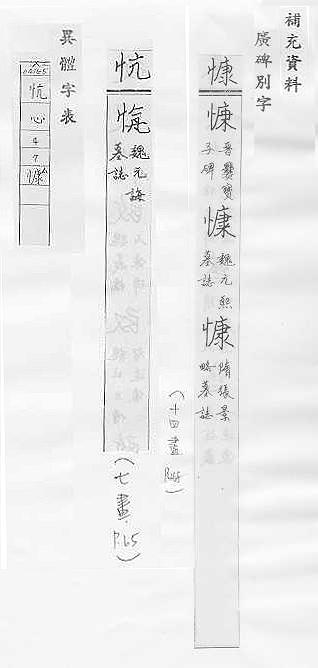 補充資料
廣碑別字
慷
慷
晉爨寶
子碑
慷
魏元熙
墓誌
慷
隋張景
略墓誌
(十四畫
忼
魏元誨
墓誌
(七畫 P.65)
異體字表
忼
心
4
7
慷